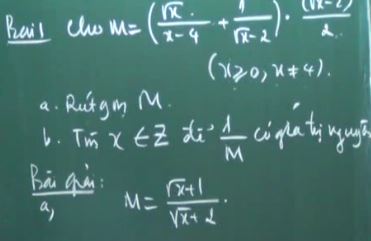 Bài 1 Cho M = (√x / x-4 + 1 / √x-2) · (√x-2) / 2
(x ≥ 0, x ≠ 4).
a. Rút gọn M.
b. Tìm x ∈ Z để 1/M có giá trị nguyên
Bài giải:
a, M = √x+1 / √x+2 .